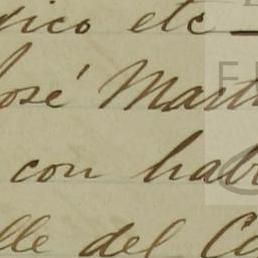 dico etc —
José Mart
con hab
lle del C